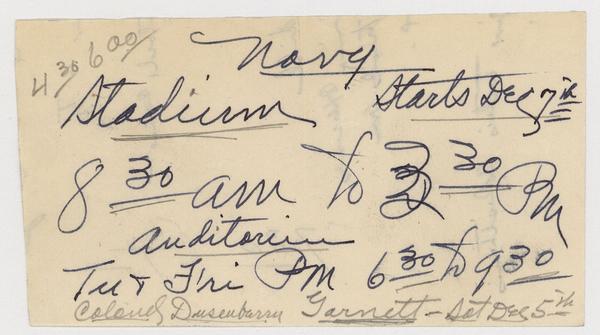 Navy
4 30 6 00
Stadium Starts Dec 7th
8 30 am to 3 30 PM
Auditorium
Tu & Fri PM 6 30 to 9 30
Colonel Dusenbarry Garnett - Sat Dec 5th